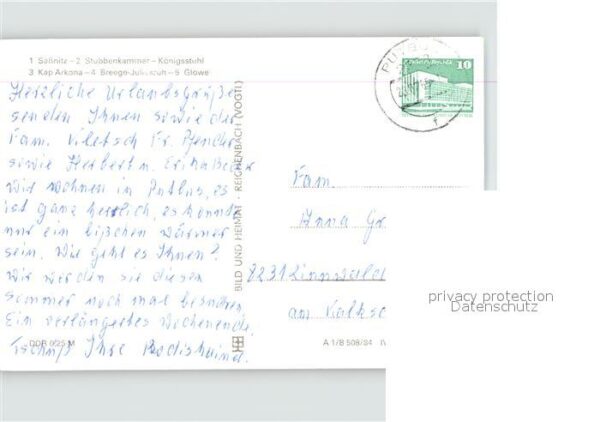 1 Saßnitz – 2 Stubbenkammer – Königsstuhl
3 Kap Arkona – 4 Breege-Juliusruh – 5 Glowe
Herzliche Urlaubsgrüße
senden Ihnen sowie der
Fam. Viletsch Fr. Pfender
sowie Herbert u. Erika
wir wohnen in Putbus, es
ist ganz herrlich, es könnte
nur ein bißchen wärmer
sein. Wie geht es Ihnen?
Wir werden sie diesen
Sommer noch mal besuchen
Ein verlängertes Wochenende
Tschüß Ihre
DDR 0,25 M
BILD UND HEIMAT · REICHENBACH (VOGTL)
A 1/B 508/84
PUTBUS
10
Fam.
Anna Gr
8231 Zinnwald
am Kalksc
privacy protection
Datenschutz